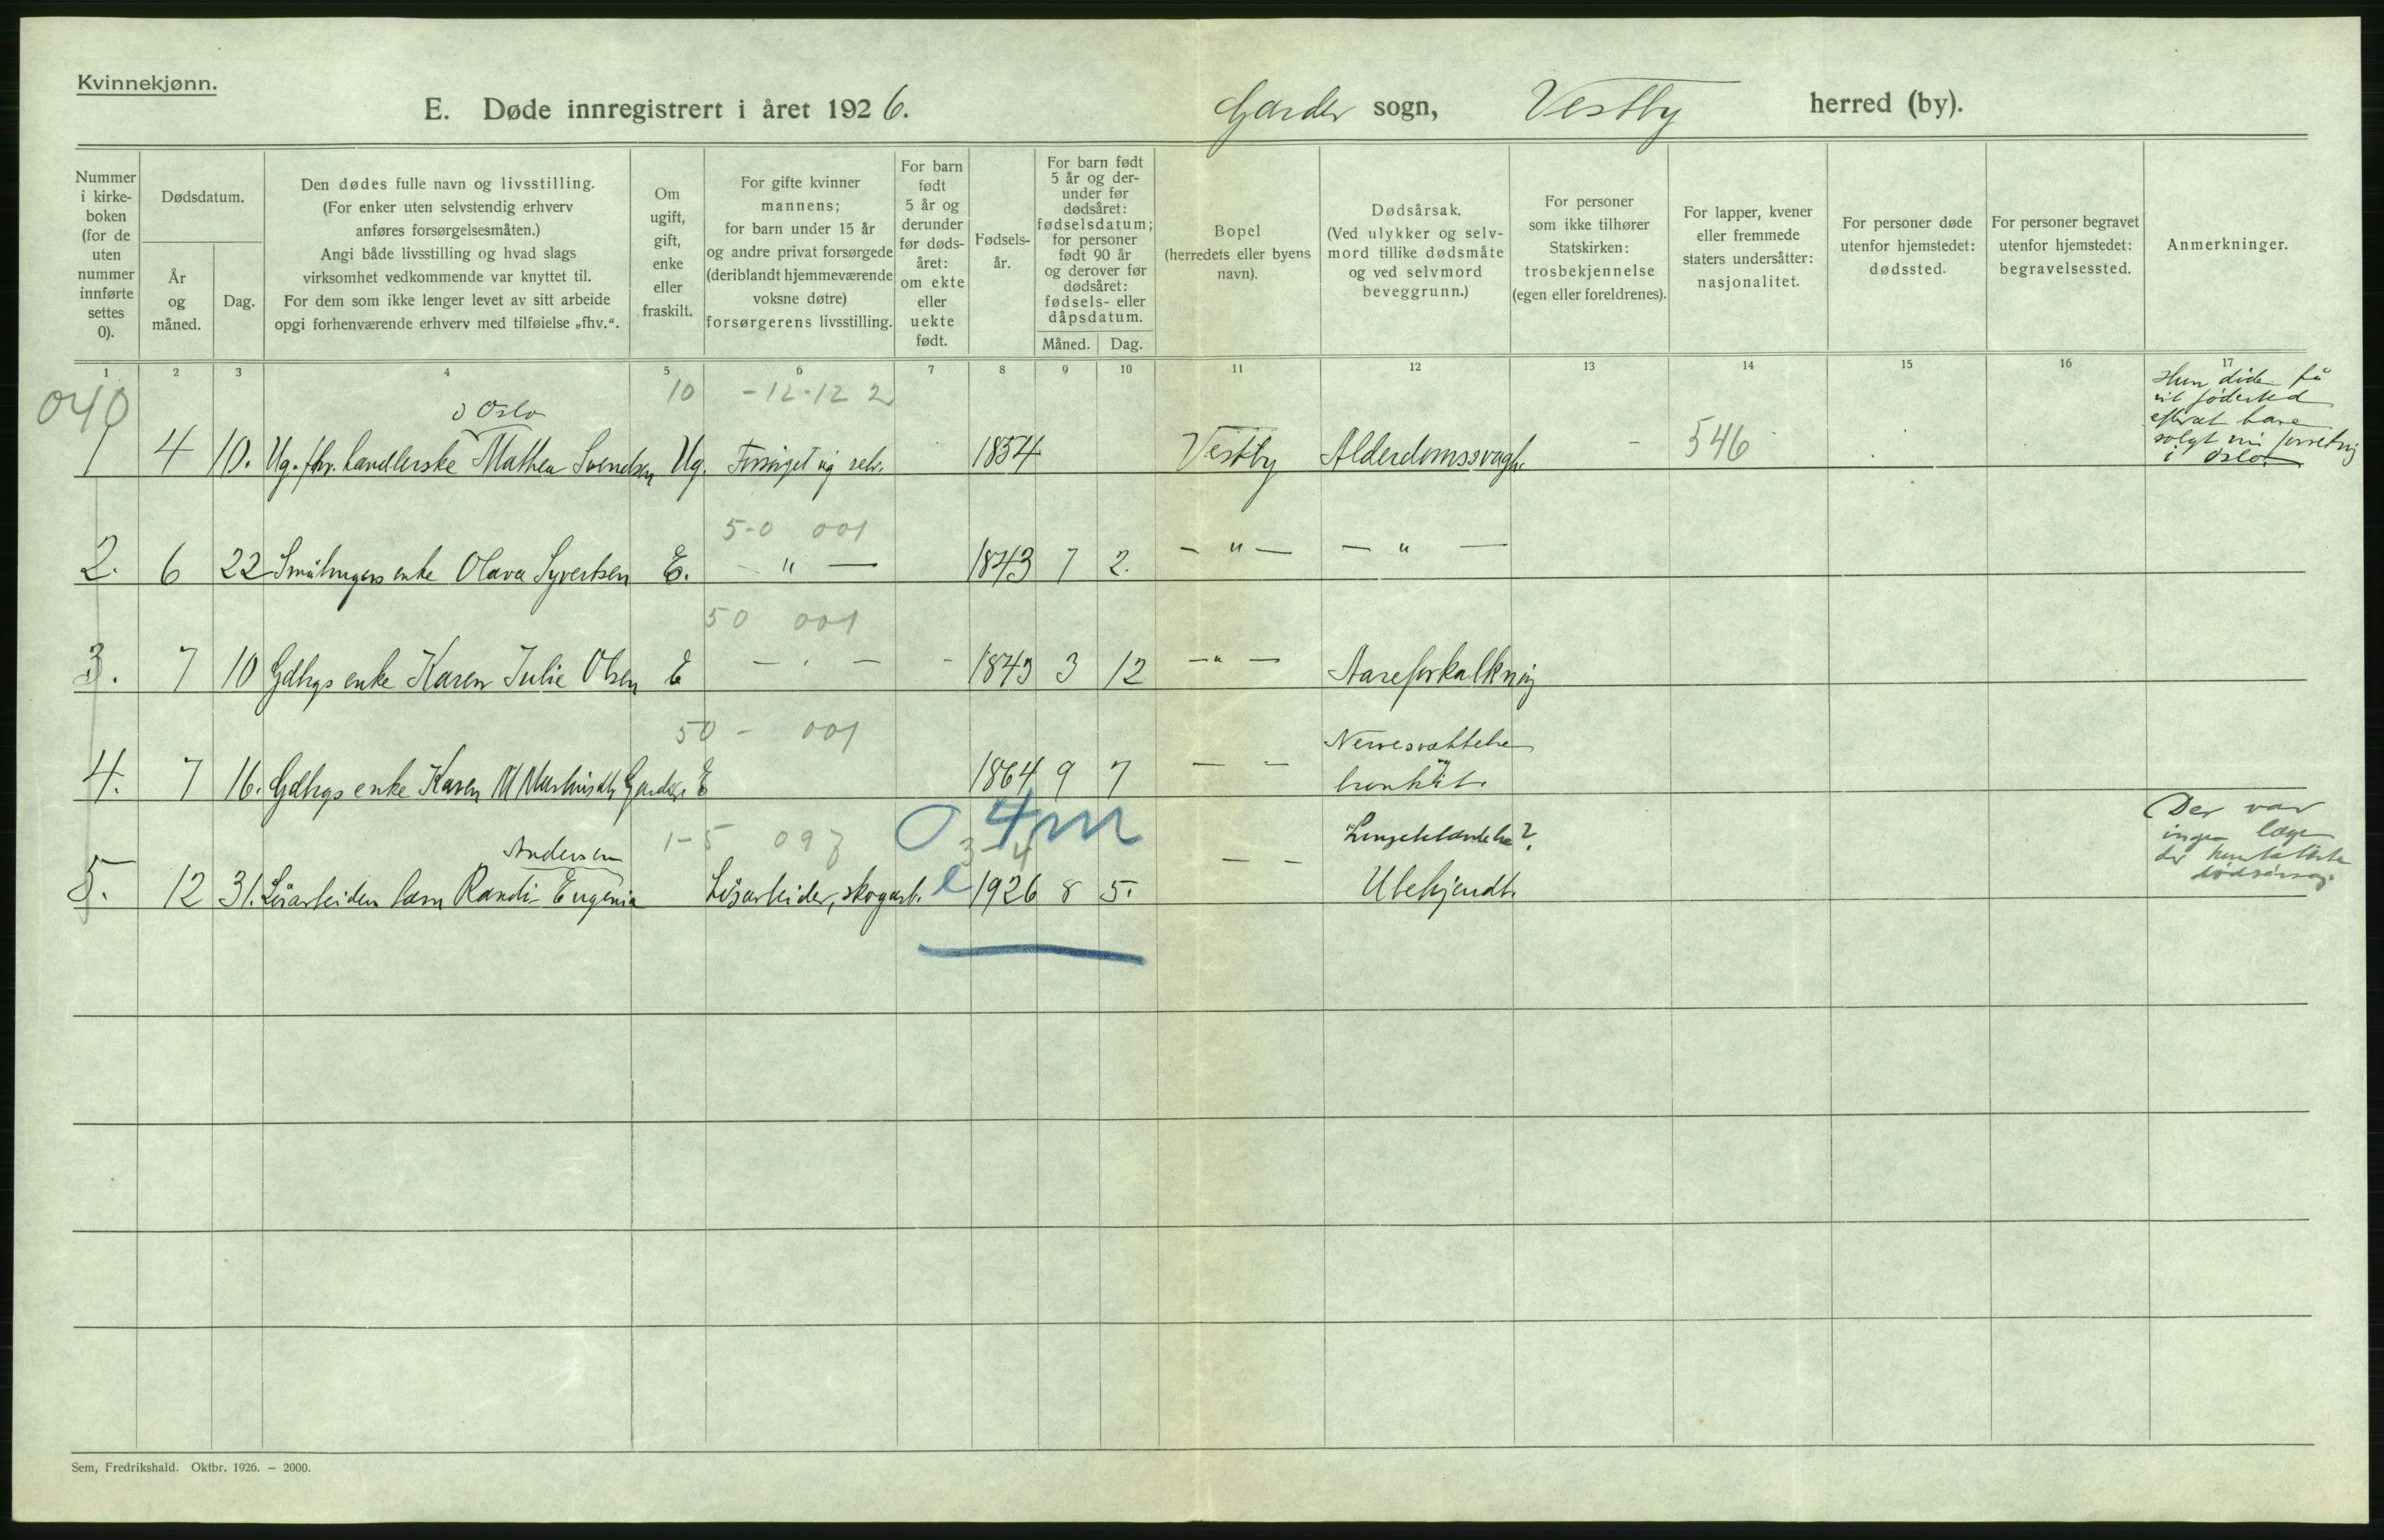 Kvinnekjønn.
E. Døde innregistrert i året 1926. Garder sogn, Vestby herred (by).
Nummer i kirke-boken (for de uten nummer innførte settes 0).
Dødsdatum.
År og måned.
Dag.
Den dødes fulle navn og livsstilling.
(For enker uten selvstendig erhverv
anføres forsørgelsesmåten.)
Angi både livsstilling og hvad slags
virksomhet vedkommende var knyttet til.
For dem som ikke lenger levet av sitt arbeide
opgi forhenværende erhverv med tilføielse „fhv.“.
Om
ugift,
gift,
enke
eller
fraskilt.
For gifte kvinner
mannens;
for barn under 15 år
og andre privat forsørgede
(deriblandt hjemmeværende
voksne døtre)
forsørgerens livsstilling.
For barn
født
5 år og
derunder
før døds-
året:
om ekte
eller
uekte
født.
Fødsels-
år.
For barn født
5 år og der-
under før
dødsåret:
fødselsdatum;
for personer
født 90 år
og derover før
dødsåret:
fødsels- eller
dåpsdatum.
Måned.
Dag.
Bopel
(herredets eller byens
navn).
Dødsårsak.
(Ved ulykker og selv-
mord tillike dødsmåte
og ved selvmord
beveggrunn.)
For personer
som ikke tilhører
Statskirken:
trosbekjennelse
(egen eller foreldrenes).
For lapper, kvener
eller fremmede
staters undersåtter:
nasjonalitet.
For personer døde
utenfor hjemstedet:
dødssted.
For personer begravet
utenfor hjemstedet:
begravelsessted.
Anmerkninger.
1 2 3 4 5 6 7 8 9 10 11 12 13 14 15 16 17
040 10 -12-12 2
i Oslo
1 4 10. Ug. fhv. handlerske Mathea Svendsen Ug. Forsørget sig selv. 1834 Vestby Alderdomssvaghet - 546
Hun døde på
sit fødested
efterat have
solgt sin forretnig
i Oslo.
5-0 001
2. 6 22 Småbrugers enke Olava Syvertsen E. - " - 1843 7 2. - " - - " -
50 001
3. 7 10 Gdbrgs enke Karen Julie Olsen E - " - - 1843 3 12 - " - Aareforkalkning
50 - 001
Nervesvækkelse
4. 7 16. Gdbrgs enke Karen M Martinsdtr Garder. E 1864 9 7 - - og bronkit.
1-5 097 0 4m
3-4
Andersen
Lungebetændelse?
5. 12 31. Løsarbeiders barn Randi Eugenia Løsarbeider, skogarb. e 1926 8 5. - - Ubekjendt.
Der var
ingen læge
der konstaterte
dødsårsag.
Sem, Fredrikshald. Oktbr. 1926. – 2000.